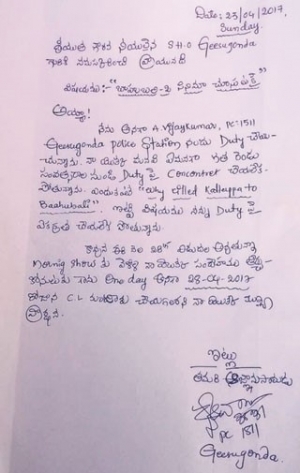 Date: 23/04/2017,
Sunday.
శ్రీయుత గౌరవ నీయులైన S.H.O Geesugonda
గారికి నమస్కరించి వ్రాయునది
విషయము:- "బాహుబలి-2 సినిమా చూచుటకై"
అయ్యా!
నేను అనగా A. Vijaykumar, PC:1511
Geesugonda police Station నందు Duty చేయు-
చున్నాను. నా యొక్క మనవి ఏమనగా గత రెండు
సంవత్సరాల నుండి Duty పై Concentret చేయలేక
పోతున్నాను. ఎందుకంటే "Why Killed Kattappa to
Baahubali". ఇట్టి విషయము నన్ను Duty పై
ఏకాగ్రత చేయలేక పోతున్నాను.
కావున ఈ నెల 28th విడుదల అవుతున్న
Mornig Show కు వెళ్లి నా యొక్క సందేహము తీర్చు-
కొనుటకు గాను One day అనగా 28-04-2017
రోజున C.L మంజూరు చేయగలరని నా యొక్క
ప్రార్థన.
ఇట్లు
తమరి విధేయుడు
PC 1511
Geesugonda.